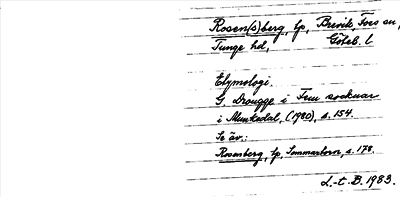 Rosen(s)berg, tp, Brevik, Foss sn,
Tunge hd, Göteb. l
Etymologi.
G. Drougge i Fem socknar
i Munkedal, (1980), s. 154.
Se äv.:
Rosenberg, tp, Sommarhorn, s. 178.
L.-t. B. 1983.